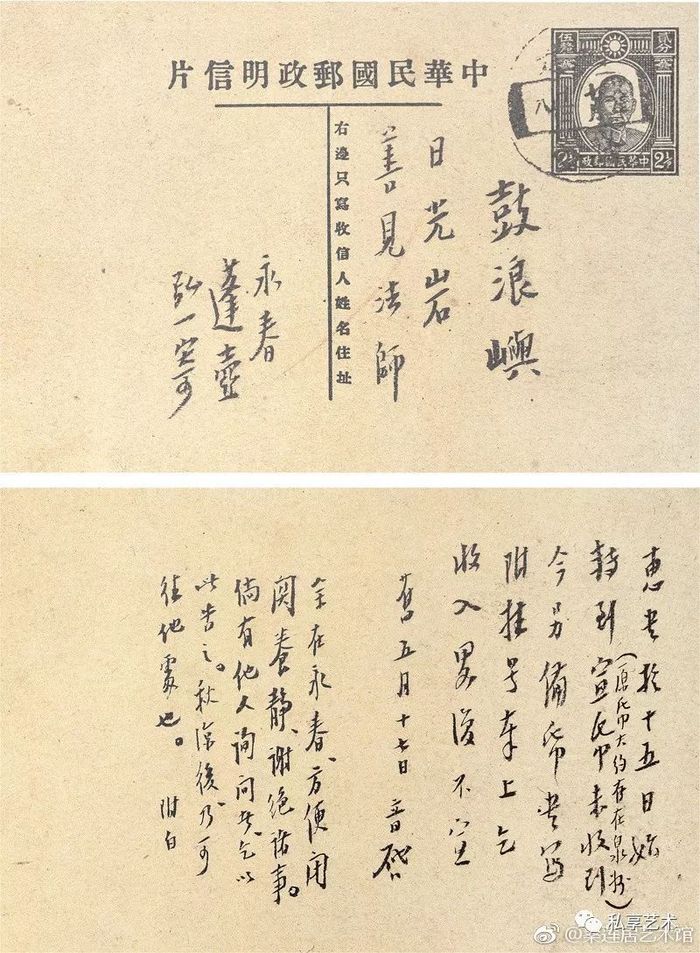 中華民國郵政明信片
貳分
2½
中華民國郵政
右邊只寫收信人姓名住址
鼓浪嶼
日光岩
善見法師
永春
蓬壺
弘一寄
惠書於十五日始
轉到宣帋未收到
（原帋大約存在泉州）
今另備帋書寫
附挂号奉上乞
收入
不宣
舊五月十七日 音啓
余在永春、方便閉
関養静、谢绝諸事。
倘有他人詢問者、乞以
此告之。秋凉後乃可
往他處也。 附白
私享艺术
居艺术馆